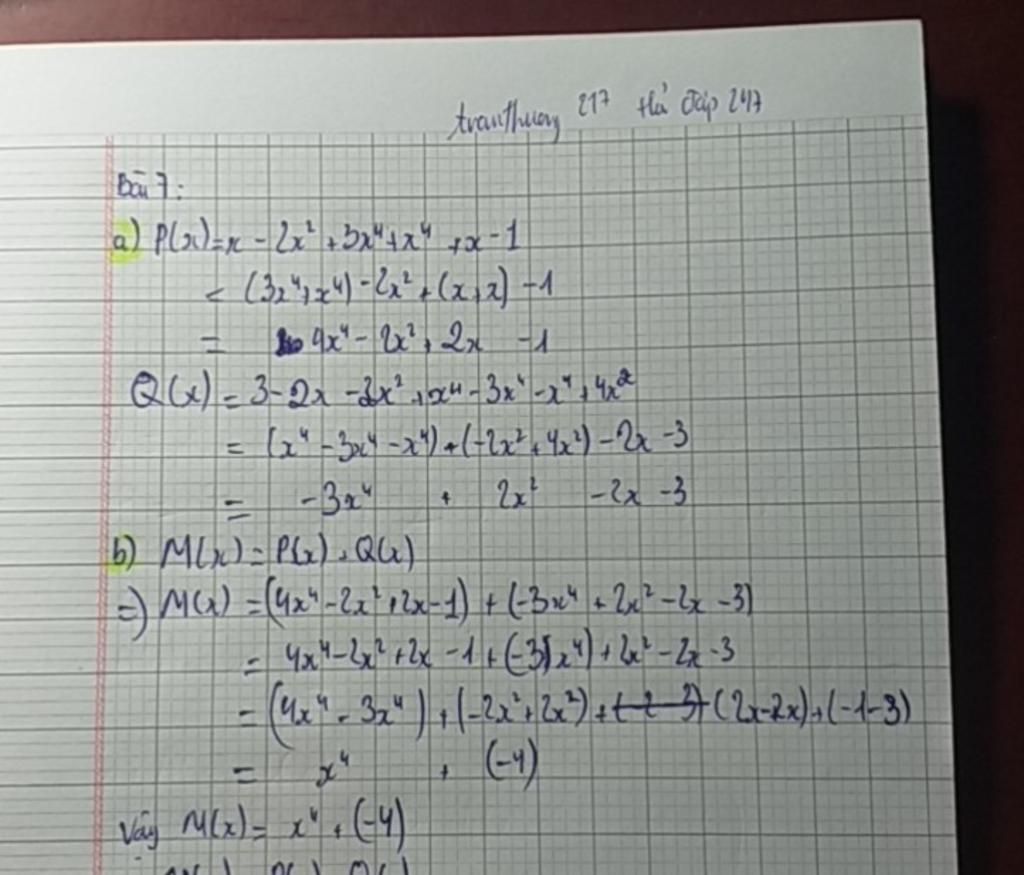 tranthuong 217 thả đáp 247
Bài 7:
a) P(x)=x - 2x² + 3x⁴ + x⁴ + x - 1
= (3x⁴ + x⁴) - 2x² + (x + x) - 1
= 4x⁴ - 2x² + 2x - 1
Q(x) = 3 - 2x - 2x² + x⁴ - 3x⁴ - x⁴ + 4x²
= (x⁴ - 3x⁴ - x⁴) + (-2x² + 4x²) - 2x - 3
= -3x⁴ + 2x² - 2x - 3
b) M(x) = P(x) + Q(x)
=) M(x) = (4x⁴ - 2x² + 2x - 1) + (-3x⁴ + 2x² - 2x - 3)
= 4x⁴ - 2x² + 2x - 1 + (-3x⁴) + 2x² - 2x - 3
= (4x⁴ - 3x⁴) + (-2x² + 2x²) + (2x - 2x) + (-1 - 3)
= x⁴ + (-4)
Vậy M(x) = x⁴ + (-4)